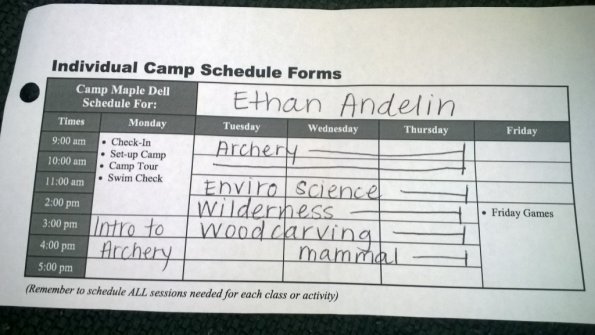 Individual Camp Schedule Forms
Camp Maple Dell
Schedule For:
Ethan Andelin
Times Monday Tuesday Wednesday Thursday Friday
9:00 am • Check-In Archery
10:00 am • Set-up Camp
• Camp Tour
11:00 am • Swim Check Enviro Science
2:00 pm Wilderness • Friday Games
3:00 pm Intro to Woodcarving
4:00 pm Archery mammal
5:00 pm
(Remember to schedule ALL sessions needed for each class or activity)